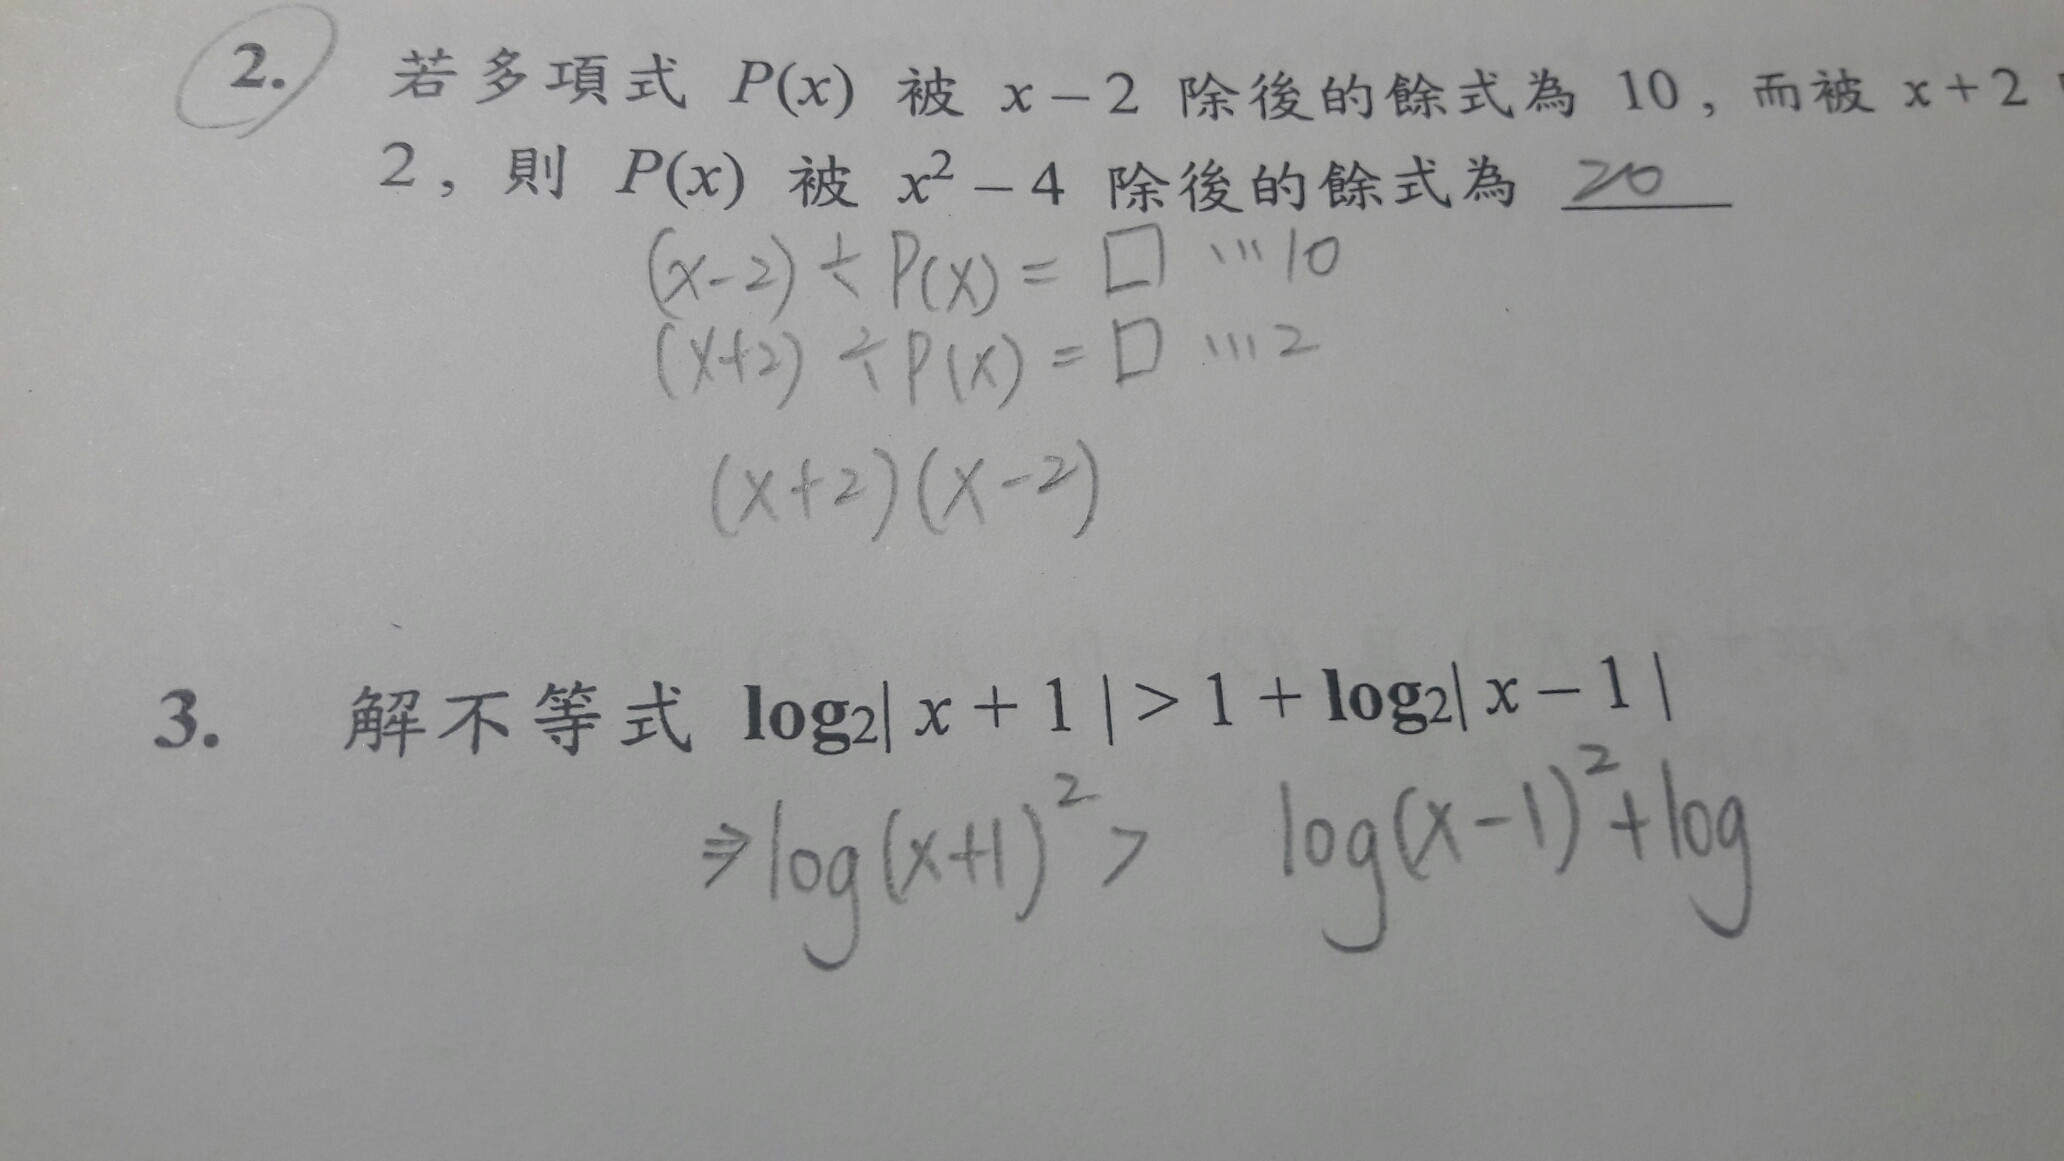 2. 若多項式 P(x) 被 x − 2 除後的餘式為 10，而被 x + 2
2，則 P(x) 被 x² − 4 除後的餘式為 20
(x-2) ÷ P(x) = □ ...10
(x+2) ÷ P(x) = □ ...2
(x+2)(x-2)
3. 解不等式 log₂| x + 1 | > 1 + log₂| x − 1 |
⇒ log(x+1)² > log(x-1)² + log